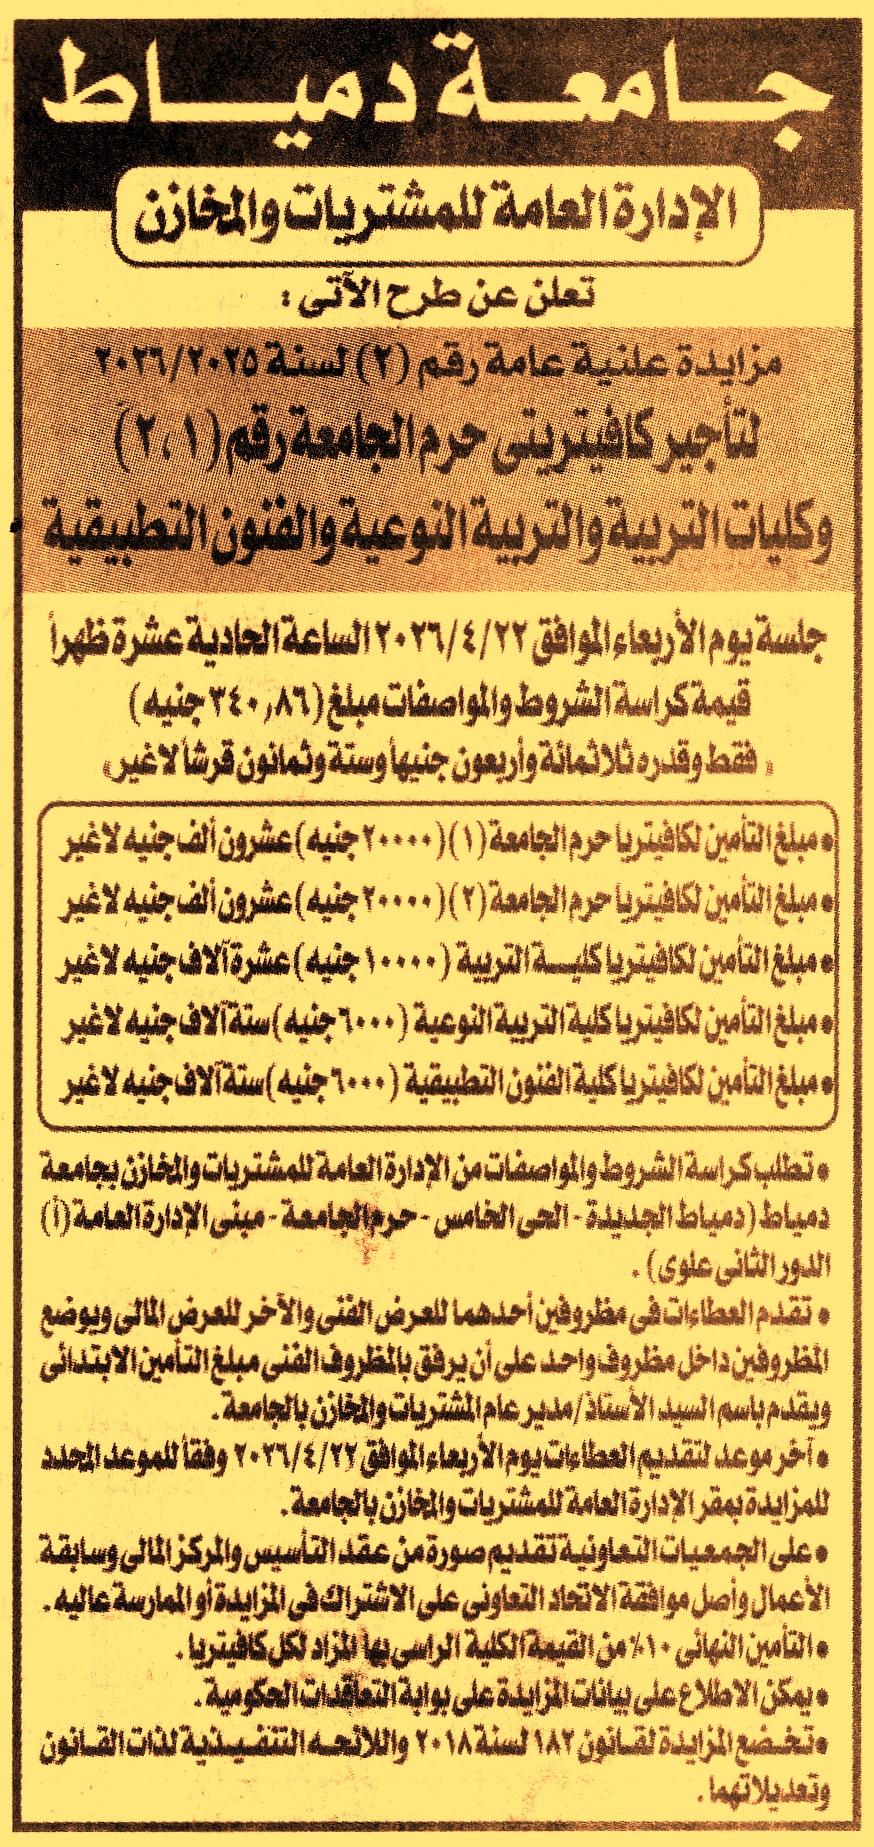 جامعة دمياط
الإدارة العامة للمشتريات والمخازن
تعلن عن طرح الآتى :
مزايدة علنية عامة رقم (٢) لسنة ٢٠٢٦/٢٠٢٥
لتأجير كافيتريتى حرم الجامعة رقم (٢،١)
وكليات التربية والتربية النوعية والفنون التطبيقية
جلسة يوم الأربعاء الموافق ٢٠٢٦/٤/٢٢ الساعة الحادية عشرة ظهراً
قيمة كراسة الشروط والمواصفات مبلغ (٣٤٠,٨٦ جنيه)
, فقط وقدره ثلاثمائة وأربعون جنيهاً وستة وثمانون قرشاً لاغير,
• مبلغ التأمين لكافيتريا حرم الجامعة (١) (٢٠٠٠٠ جنيه) عشرون ألف جنيه لاغير
• مبلغ التأمين لكافيتريا حرم الجامعة (٢) (٢٠٠٠٠ جنيه) عشرون ألف جنيه لاغير
• مبلغ التأمين لكافيتريا كليــة التربية (١٠٠٠٠ جنيه) عشرة آلاف جنيه لاغير
• مبلغ التأمين لكافيتريا كلية التربية النوعية (٦٠٠٠ جنيه) ستة آلاف جنيه لاغير
• مبلغ التأمين لكافيتريا كلية الفنون التطبيقية (٦٠٠٠ جنيه) ستة آلاف جنيه لاغير
• تطلب كراسة الشروط والمواصفات من الإدارة العامة للمشتريات والمخازن بجامعة
دمياط (دمياط الجديدة - الحى الخامس - حرم الجامعة - مبنى الإدارة العامة (أ)
الدور الثانى علوى) .
• تقدم العطاءات فى مظروفين أحدهما للعرض الفنى والآخر للعرض المالى ويوضع
المظروفين داخل مظروف واحد على أن يرفق بالمظروف الفنى مبلغ التأمين الابتدائى
ويقدم باسم السيد الأستاذ/مدير عام المشتريات والمخازن بالجامعة.
• آخر موعد لتقديم العطاءات يوم الأربعاء الموافق ٢٠٢٦/٤/٢٢ وفقاً للموعد المحدد
للمزايدة بمقر الإدارة العامة للمشتريات والمخازن بالجامعة.
• على الجمعيات التعاونية تقديم صورة من عقد التأسيس والمركز المالى وسابقة
الأعمال وأصل موافقة الاتحاد التعاونى على الاشتراك فى المزايدة أو الممارسة عاليه.
• التأمين النهائى ١٠٪ من القيمة الكلية الراسى بها المزاد لكل كافيتريا.
• يمكن الاطلاع على بيانات المزايدة على بوابة التعاقدات الحكومية.
• تخضع المزايدة لقانون ١٨٢ لسنة ٢٠١٨ واللائحه التنفيذية لذات القانون
وتعديلاتهما.